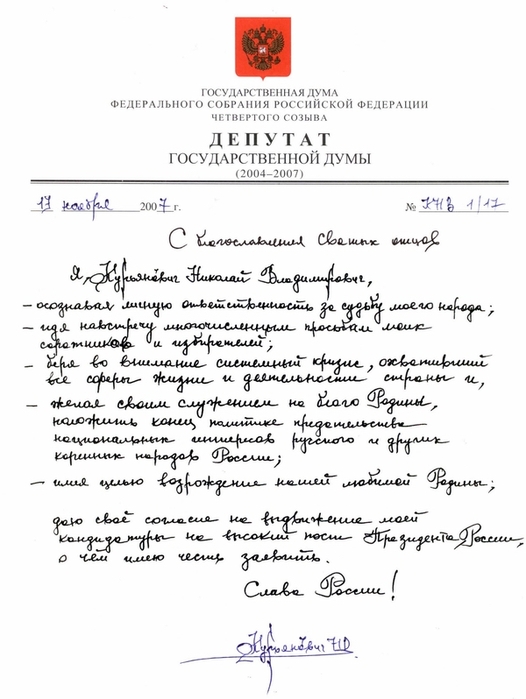 ГОСУДАРСТВЕННАЯ ДУМА
ФЕДЕРАЛЬНОГО СОБРАНИЯ РОССИЙСКОЙ ФЕДЕРАЦИИ
ЧЕТВЕРТОГО СОЗЫВА
ДЕПУТАТ
ГОСУДАРСТВЕННОЙ ДУМЫ
(2004–2007)
17 ноября 2007 г. № КНВ 1/17
С благословления святых отцов
Я, Курьянович Николай Владимирович,
– осознавая личную ответственность за судьбу моего народа;
– идя навстречу многочисленным просьбам моих
соратников и избирателей;
– беря во внимание системный кризис, охвативший
все сферы жизни и деятельности страны и,
– желая своим служением на благо Родины,
положить конец политике предательства
национальных интересов русского и других
коренных народов России;
– имея целью возрождение нашей любимой Родины;
даю своё согласие на выдвижение моей
кандидатуры на высокий пост Президента России,
о чём имею честь заявить.
Слава России!
Курьянович НВ